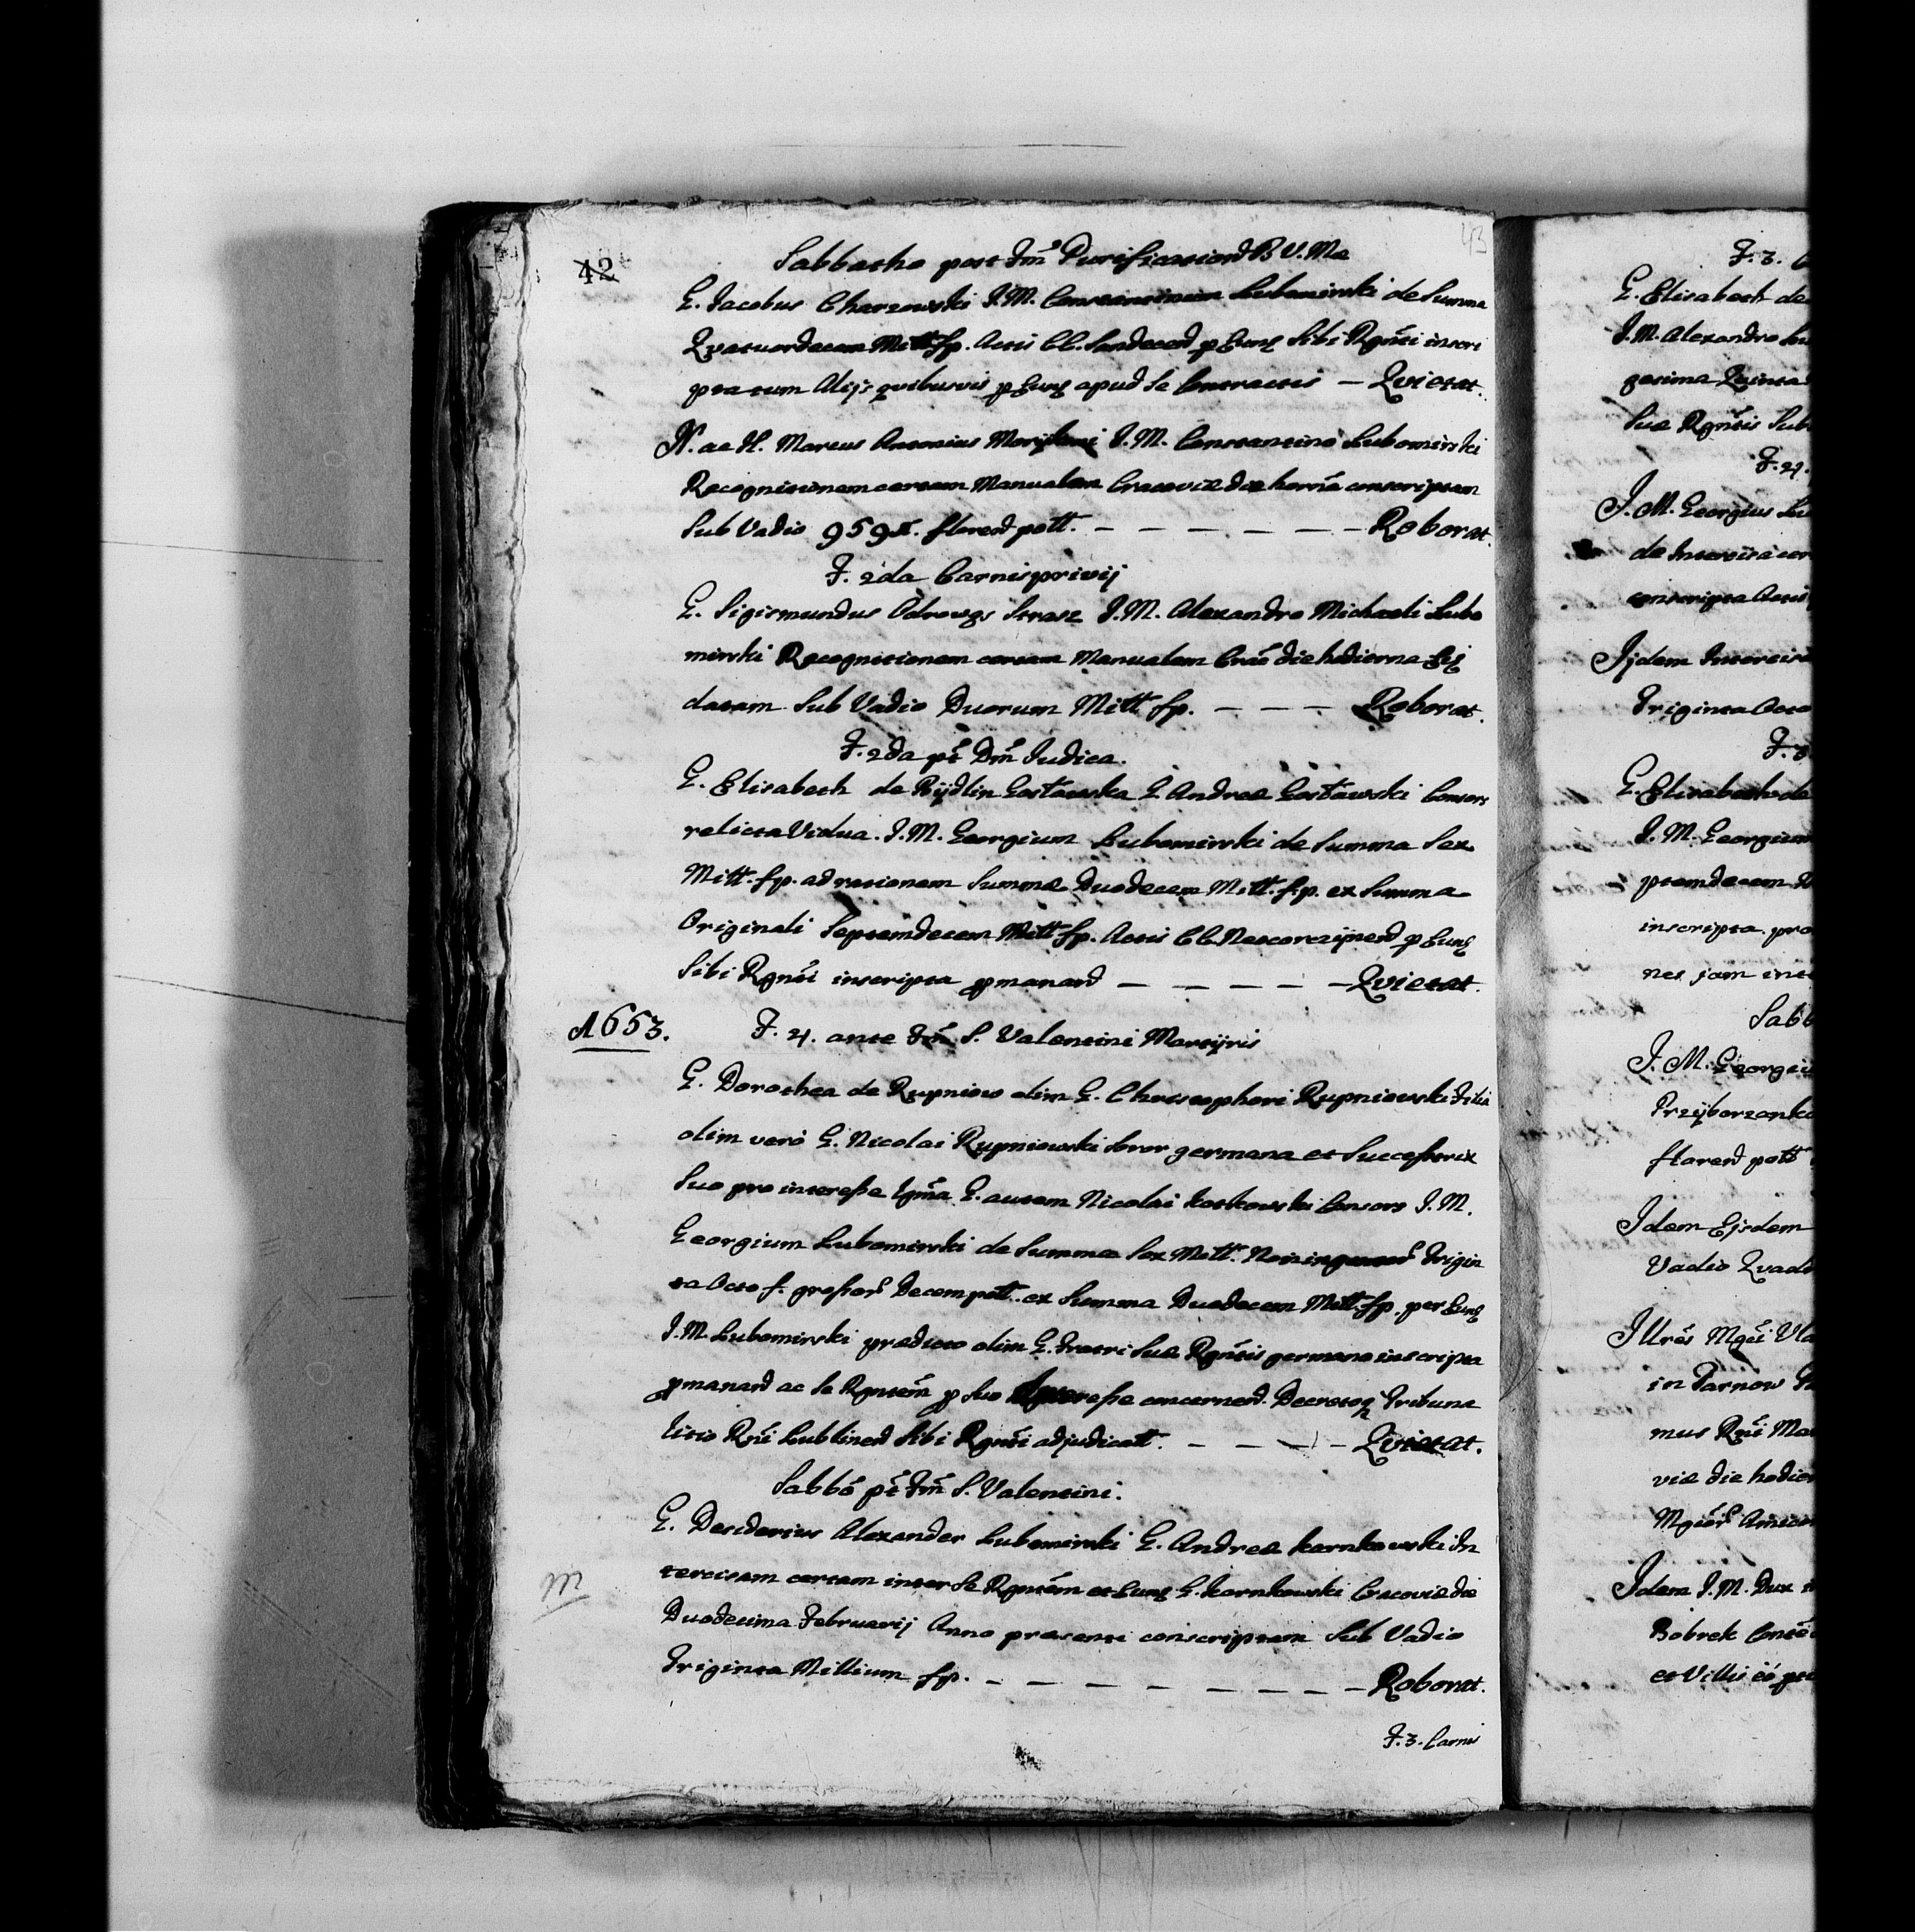 42
43
Sabbatho post Fm̃ Purificationd B V. Ma
G. Jacobus Charzowski I. M. Constantinum Lubomirski de Summa
Qvatuordecem Mill fp. Actis CC. Sandecend p Eunq Sibi Rgnti inscri
pta tum Alijs qvibusvis p Eunq apud Se Contractis — Qvietat.
N. ac H. Marcus Antonius I. M. Constantino Lubomirski
Recognitionem certam Manualem Cracoviæ die horna conscriptam
Sub Vadio 959 fl. florend poll. — — — — — — Roborat.
F. 2da Carnisprivij
G. Sigismundus Odrowąs Strasz I. M. Alexandro Michaeli Lubo
mirski Recognitionem certam Manualem Craõ die hodierna Eij
datam Sub Vadio Duorum Mill fp. — — — Roborat.
F. 2da pt Dm̃ Judica.
G. Elisabeth de Rijdlin Gosławska G. Andreæ Gosławski Consors
relicta Vidua. I. M. Georgium Lubomirski de Summa Sex
Mill. fp. ad rationem Summæ Duodecem Mill. fp. ex Summa
Originali Septemdecem Mill fp. Actis CC. Neocorczijnend p Eunq
Sibi Rgnti inscripta pmanand — — — — — Qvietat.
1653. F. 4. ante Fm̃ S. Valentini Martijris
G. Dorothea de Rupniow olim G. Christophori Rupniowski Filia
olim verò G. Nicolai Rupniowski Soror germana et Successtrix
Suo pro interesse lgma G. autem Nicolai Kotkowski Consors I. M.
Georgium Lubomirski de Summa Sex Mill. Noningentor Trigin
ta Octo f. grossor Decem poll. ex Summa Duodecem Mill. fp. per Eunq
I. M. Lubomirski prædicto olim G. Fratri Suæ Rgntis germano inscripta
pmanand ac Se Rgntem p Suo Interesse concernend. Decretoq Tribuna
litio Rni Lublinend Sibi Rgnti adjudicatt. — — — — Qvietat.
Sabbõ pt Fm̃ S. Valentini.
G. Desiderius Alexander Lubomirski G. Andreæ Karnkowski In
tercisam certam inter Se Rgntem et Eunq G. Karnkowski Cracoviæ die
Duodecima Februarij Anno præsenti conscriptam Sub Vadio
Triginta Millium fp. — — — — — — — — Roborat.
F. 3. Carnis
m
F. 3.
G. Elisabeth de
I. M. Alexandro Lu
gesima Qvinta
Suæ Rgntis Sub
F. 4.
I. M. Georgius Lu
de Intercisa cer
conscripta Actis
Ijdem Intercisa
Triginta Octo
F. 3
G. Elisabeth de
I. M. Georgium
ptemdecem M
inscripta pro
nes jam inte
Sabb
I. M. Georgiu
Przijborzanka
florend poll
Idem Ejsdem
Vadio Qvadr
Illres Mgci Vla
in Tarnow
mus Rni Ma
viæ die hodier
Mgcor Amicor
Idem I. M. Dux
Bobrek
et Villis